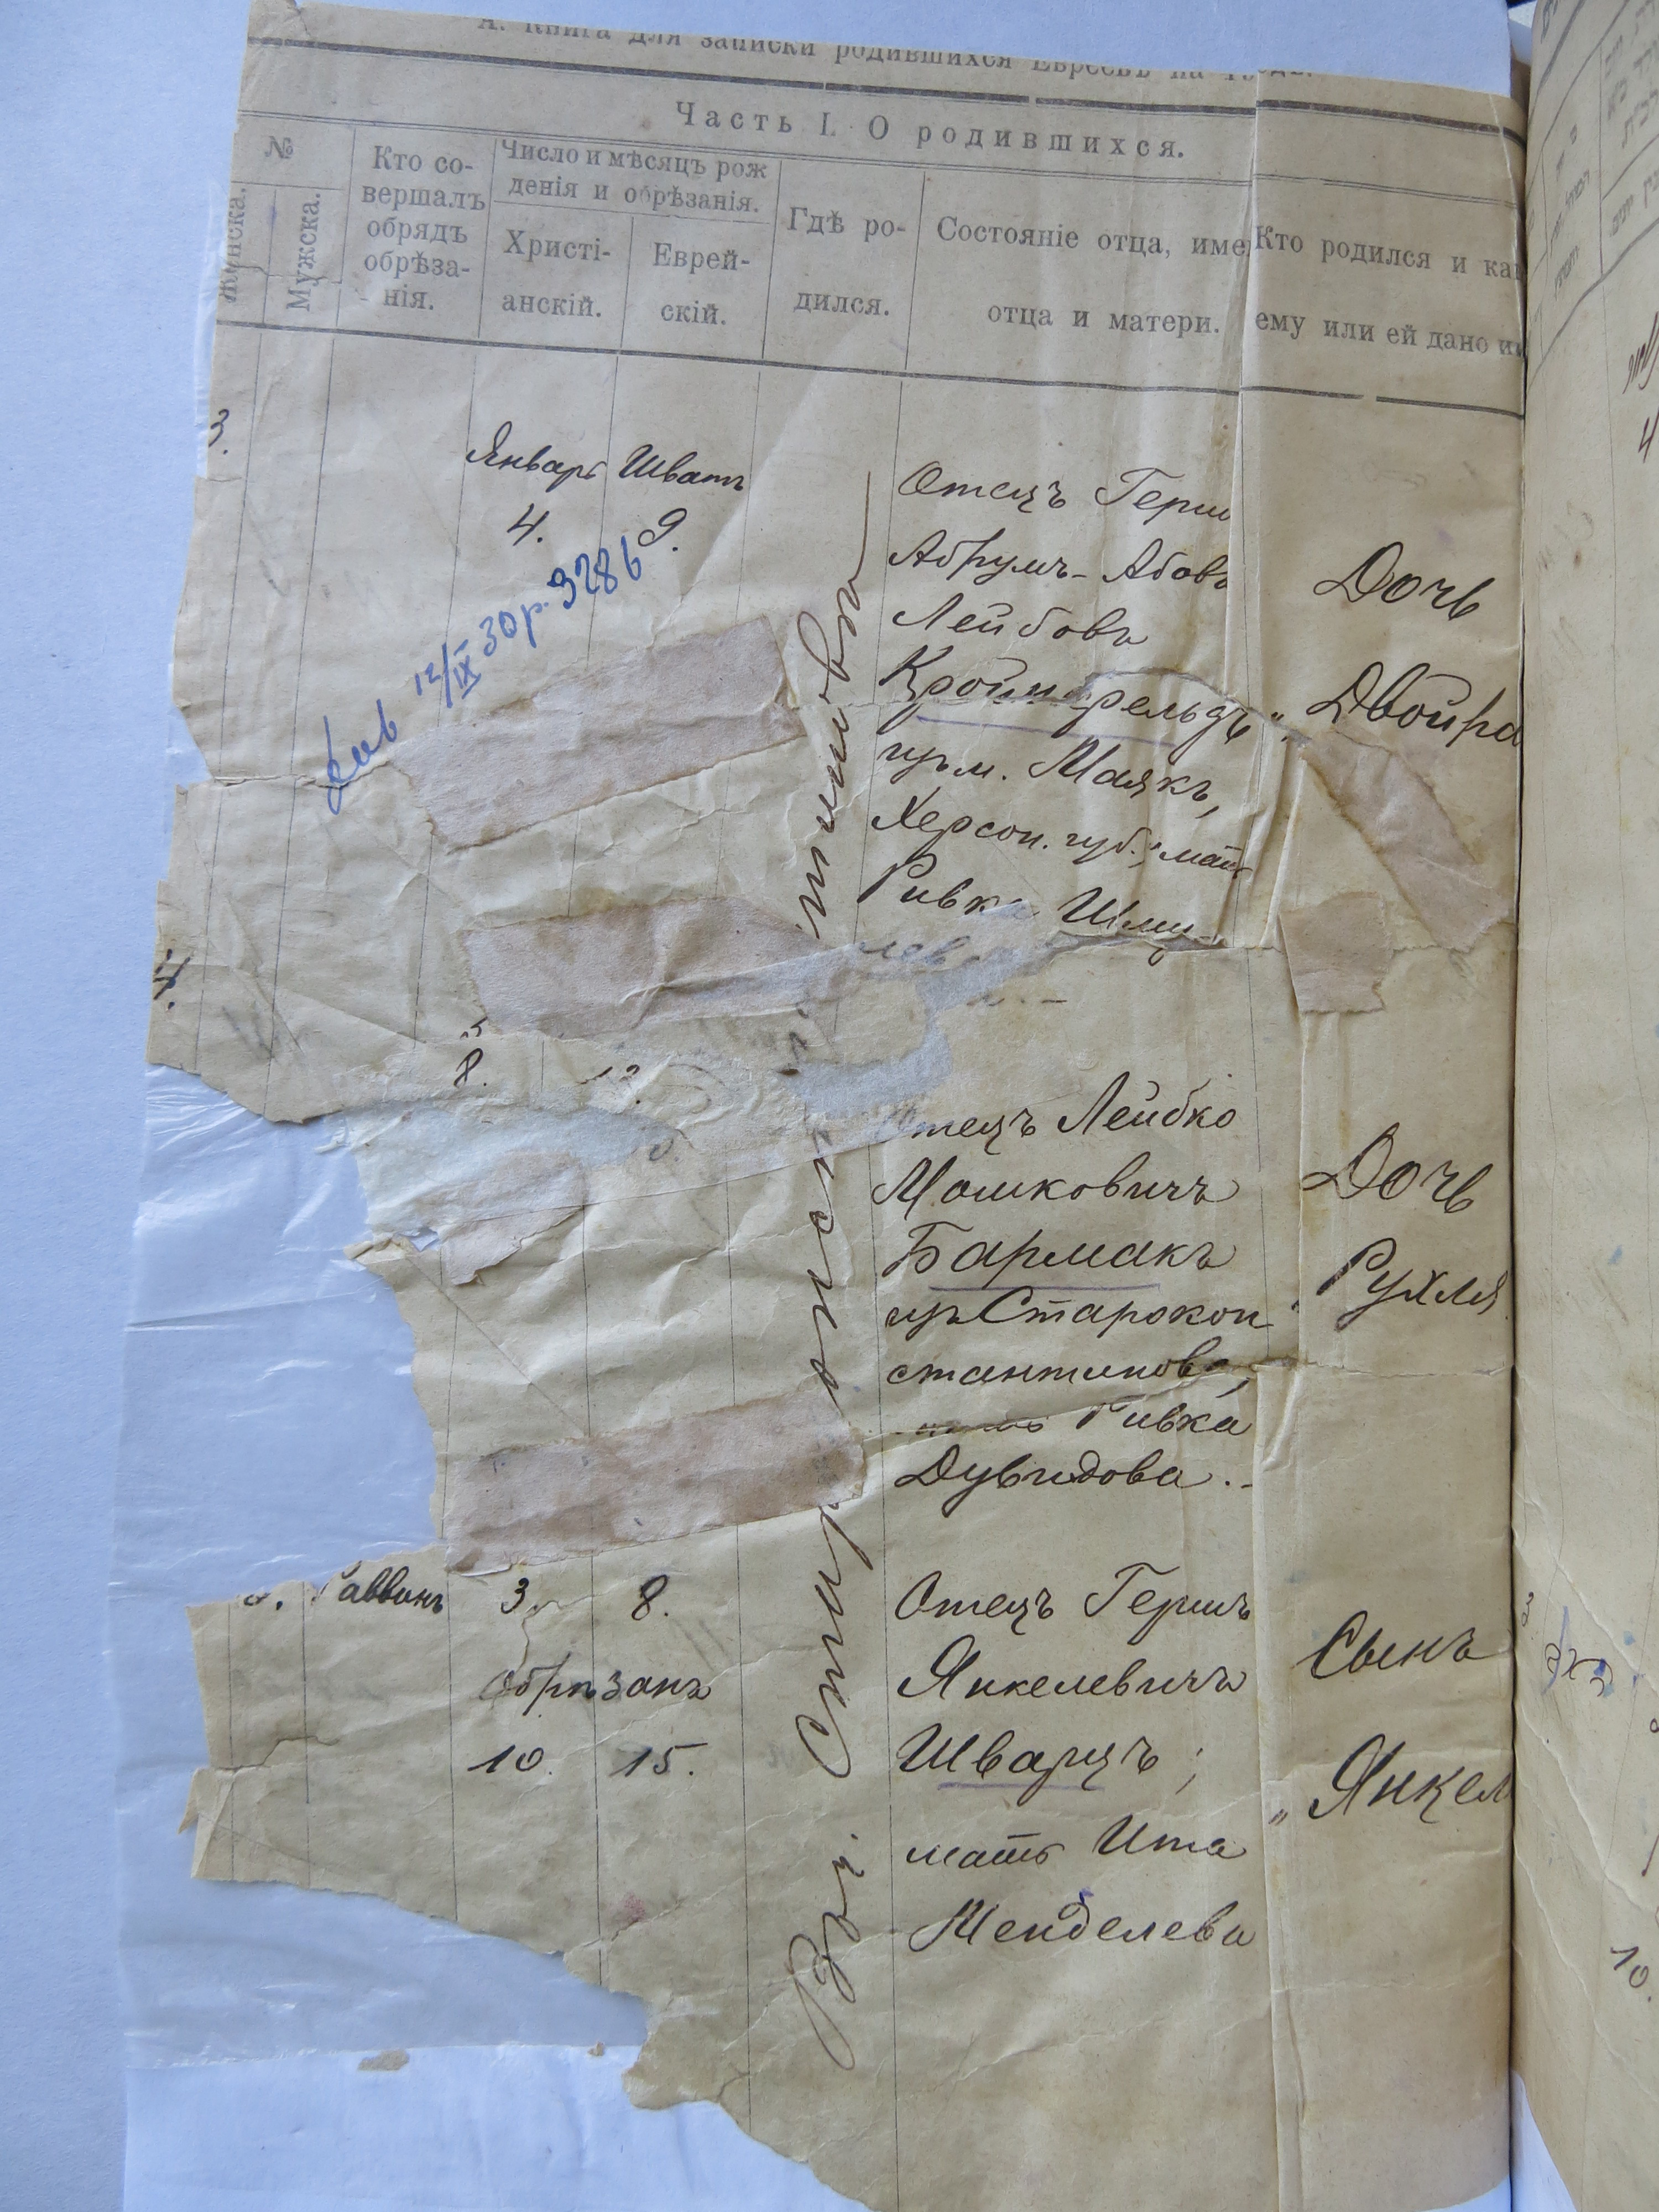 А. Книга для записки родившихся Евреевъ на
Часть I. О родившихся.
№
Женска.
Мужска.
Кто со-
вершалъ
обрядъ
обрѣза-
нія.
Число и мѣсяцъ рож
денія и обрѣзанія.
Христі-
анскій.
Еврей-
скій.
Гдѣ ро-
дился.
Состояніе отца, име
отца и матери.
Кто родился и ка
ему или ей дано и
3.
Январь Шватъ
4. 9.
12/IX 30 р. 3286
Отецъ Герш
Абрумъ-Абовъ
Лейбовъ
Кройнфельдъ
изъ м. Маякъ,
Херсон. губ.; мать
Ривка Шму-
лев
Дочь
„Двойра
4.
8. 12.
Отецъ Лейбко
Мошковичъ
Бармакъ
изъ Старокон-
стантинова,
мать Ривка
Дувидова.-
Дочь
„Рухля
Раввинъ 3. 8.
Обрѣзанъ
10. 15.
Отецъ Гершъ
Янкелевичъ
Шварцъ;
мать Ита
Менделева
Сынъ
„Янкел
Въ г. Староконстантиновѣ